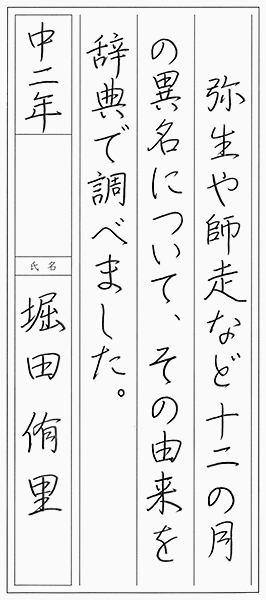 弥生や師走など十二の月
の異名について、その由来を
辞典で調べました。
中二年
氏名
堀田侑里